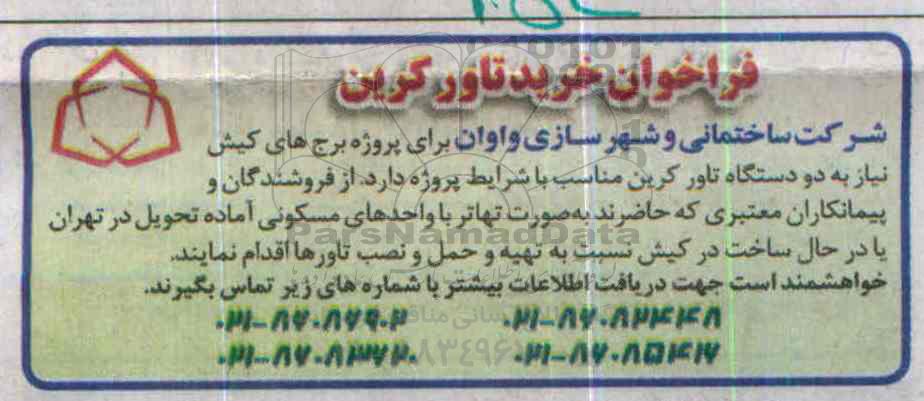 فراخوان خرید تاور کرین
شرکت ساختمانی و شهر سازی واوان برای پروژه برج های کیش
نیاز به دو دستگاه تاور کرین مناسب با شرایط پروژه دارد. از فروشندگان و
پیمانکاران معتبری که حاضرند به‌صورت تهاتر با واحدهای مسکونی آماده تحویل در تهران
یا در حال ساخت در کیش نسبت به تهیه و حمل و نصب تاورها اقدام نمایند.
خواهشمند است جهت دریافت اطلاعات بیشتر با شماره های زیر تماس بگیرند.
ParsNamadData